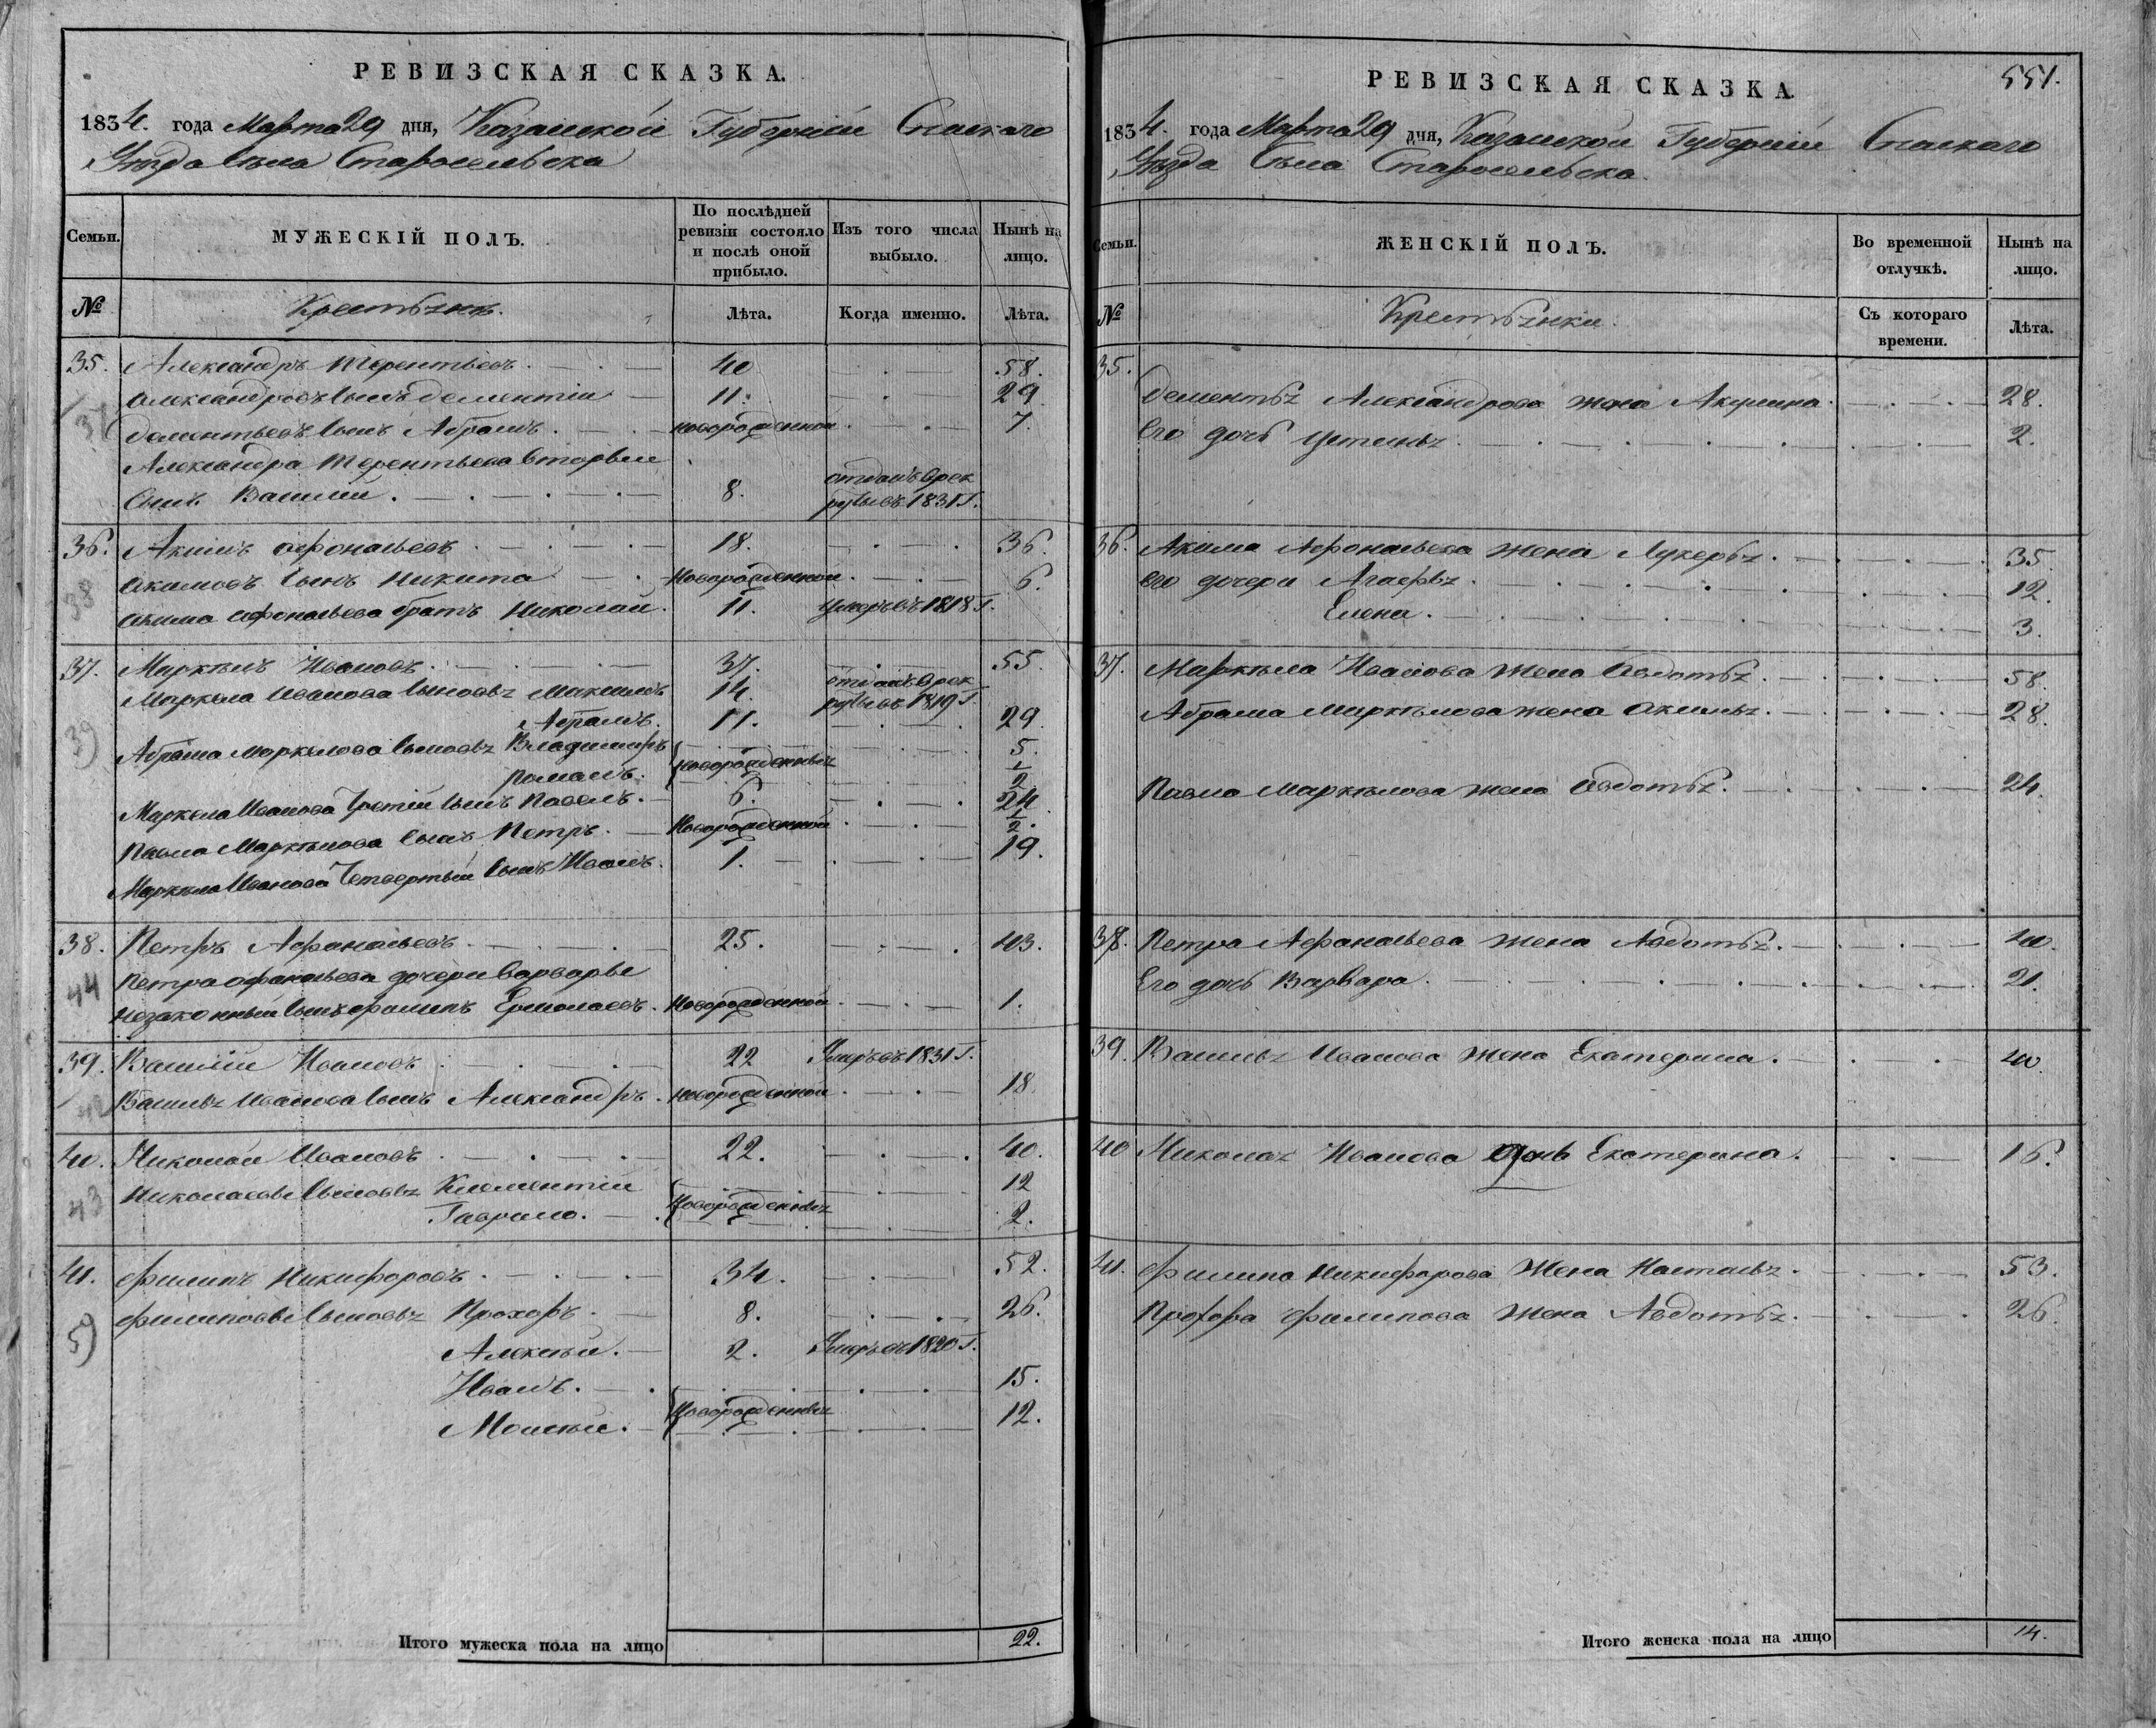 РЕВИЗСКАЯ СКАЗКА.
1834. года Марта 29 дня, Казанской Губернии Спаскаго
Уѣзда Села Старосельска
Семьи.
МУЖЕСКІЙ ПОЛЪ.
По послѣдней ревизіи состояло и послѣ оной прибыло.
Изъ того числа выбыло.
Нынѣ на лицо.
№
Крестьянъ.
Лѣта.
Когда именно.
Лѣта.
35. Александръ Терентьевъ. 40 58.
Александровъ сынъ Дементіи 11. 29
37
Дементьевъ сынъ Абрамъ. новорожденной 7.
Александра Терентьева вторый
Сынъ Василии. 8. отданъ врек
рутывъ 1831 Г.
36. Акимъ Афонасьевъ 18. 36.
38
Акимовъ сынъ Никита новорожденной 6.
Акима Афонасьева братъ Николай. 11. умеръ въ 1818 Г.
37. Маркелъ Ивановъ. 37. 55.
Маркела Иванова сыновья Максимъ 14. отданъ врек
рутывъ 1819 Г.
Абрамъ. 11. 29
39
Абрама Маркелова сыновья Владимиръ новорожденныя 5.
Романъ. 1/2
Маркела Иванова третій сынъ Павелъ. 6. 24
Павла Маркелова сынъ Петръ. новорожденной 1/2.
Маркела Иванова четвертый сынъ Иванъ. 1. 19.
38. Петръ Афанасьевъ. 25. 43.
44
Петра Афанасьева дочери Варвары
незаконный сынъ Ермолаевъ. новорожденной 1.
39. Василии Ивановъ 22 Умръ въ 1831 Г.
42
Василья Иванова сынъ Александръ. новорожденной 18
40. Николай Ивановъ 22. 40.
43
Николаевы сыновья Клементій новорожденныя 12
Гаврило. 2.
41. Филипъ Никифоровъ. 34. 52.
59
Филиповы сыновья Прохоръ. 8. 26.
Алексѣй. 2. Умръ въ 1820 Г.
Иванъ. новорожденныя 15.
Моисѣй. 12.
Итого мужеска пола на лицо 22.
РЕВИЗСКАЯ СКАЗКА.
551.
1834. года Марта 29 дня, Казанской Губерніи Спаскаго
Уѣзда Села Старосельска.
Семьи.
ЖЕНСКІЙ ПОЛЪ.
Во временной отлучкѣ.
Нынѣ на лицо.
№
Крестьянки.
Съ котораго времени.
Лѣта.
35.
Дементья Александрова жена Акулина. 28.
Его дочь Устинья. 2.
36. Акима Афонасьева жена Лукерья. 35.
его дочери Агафья. 12.
Елена. 3.
37. Маркѣла Иванова жена Авдотья. 58.
Абрама Маркѣлова жена Аксинья. 28.
Павла Маркѣлова жена Авдотья. 24.
38. Петра Афанасьева жена Авдотья. 40.
Его дочь Варвара. 21.
39. Василья Иванова жена Екатерина. 40.
40 Николая Иванова дочь Екатерина. 16.
41. Филипа Никифорова Жена Настасья. 53.
Прохора Филипова жена Авдотья. 26.
Итого женска пола на лицо 14.